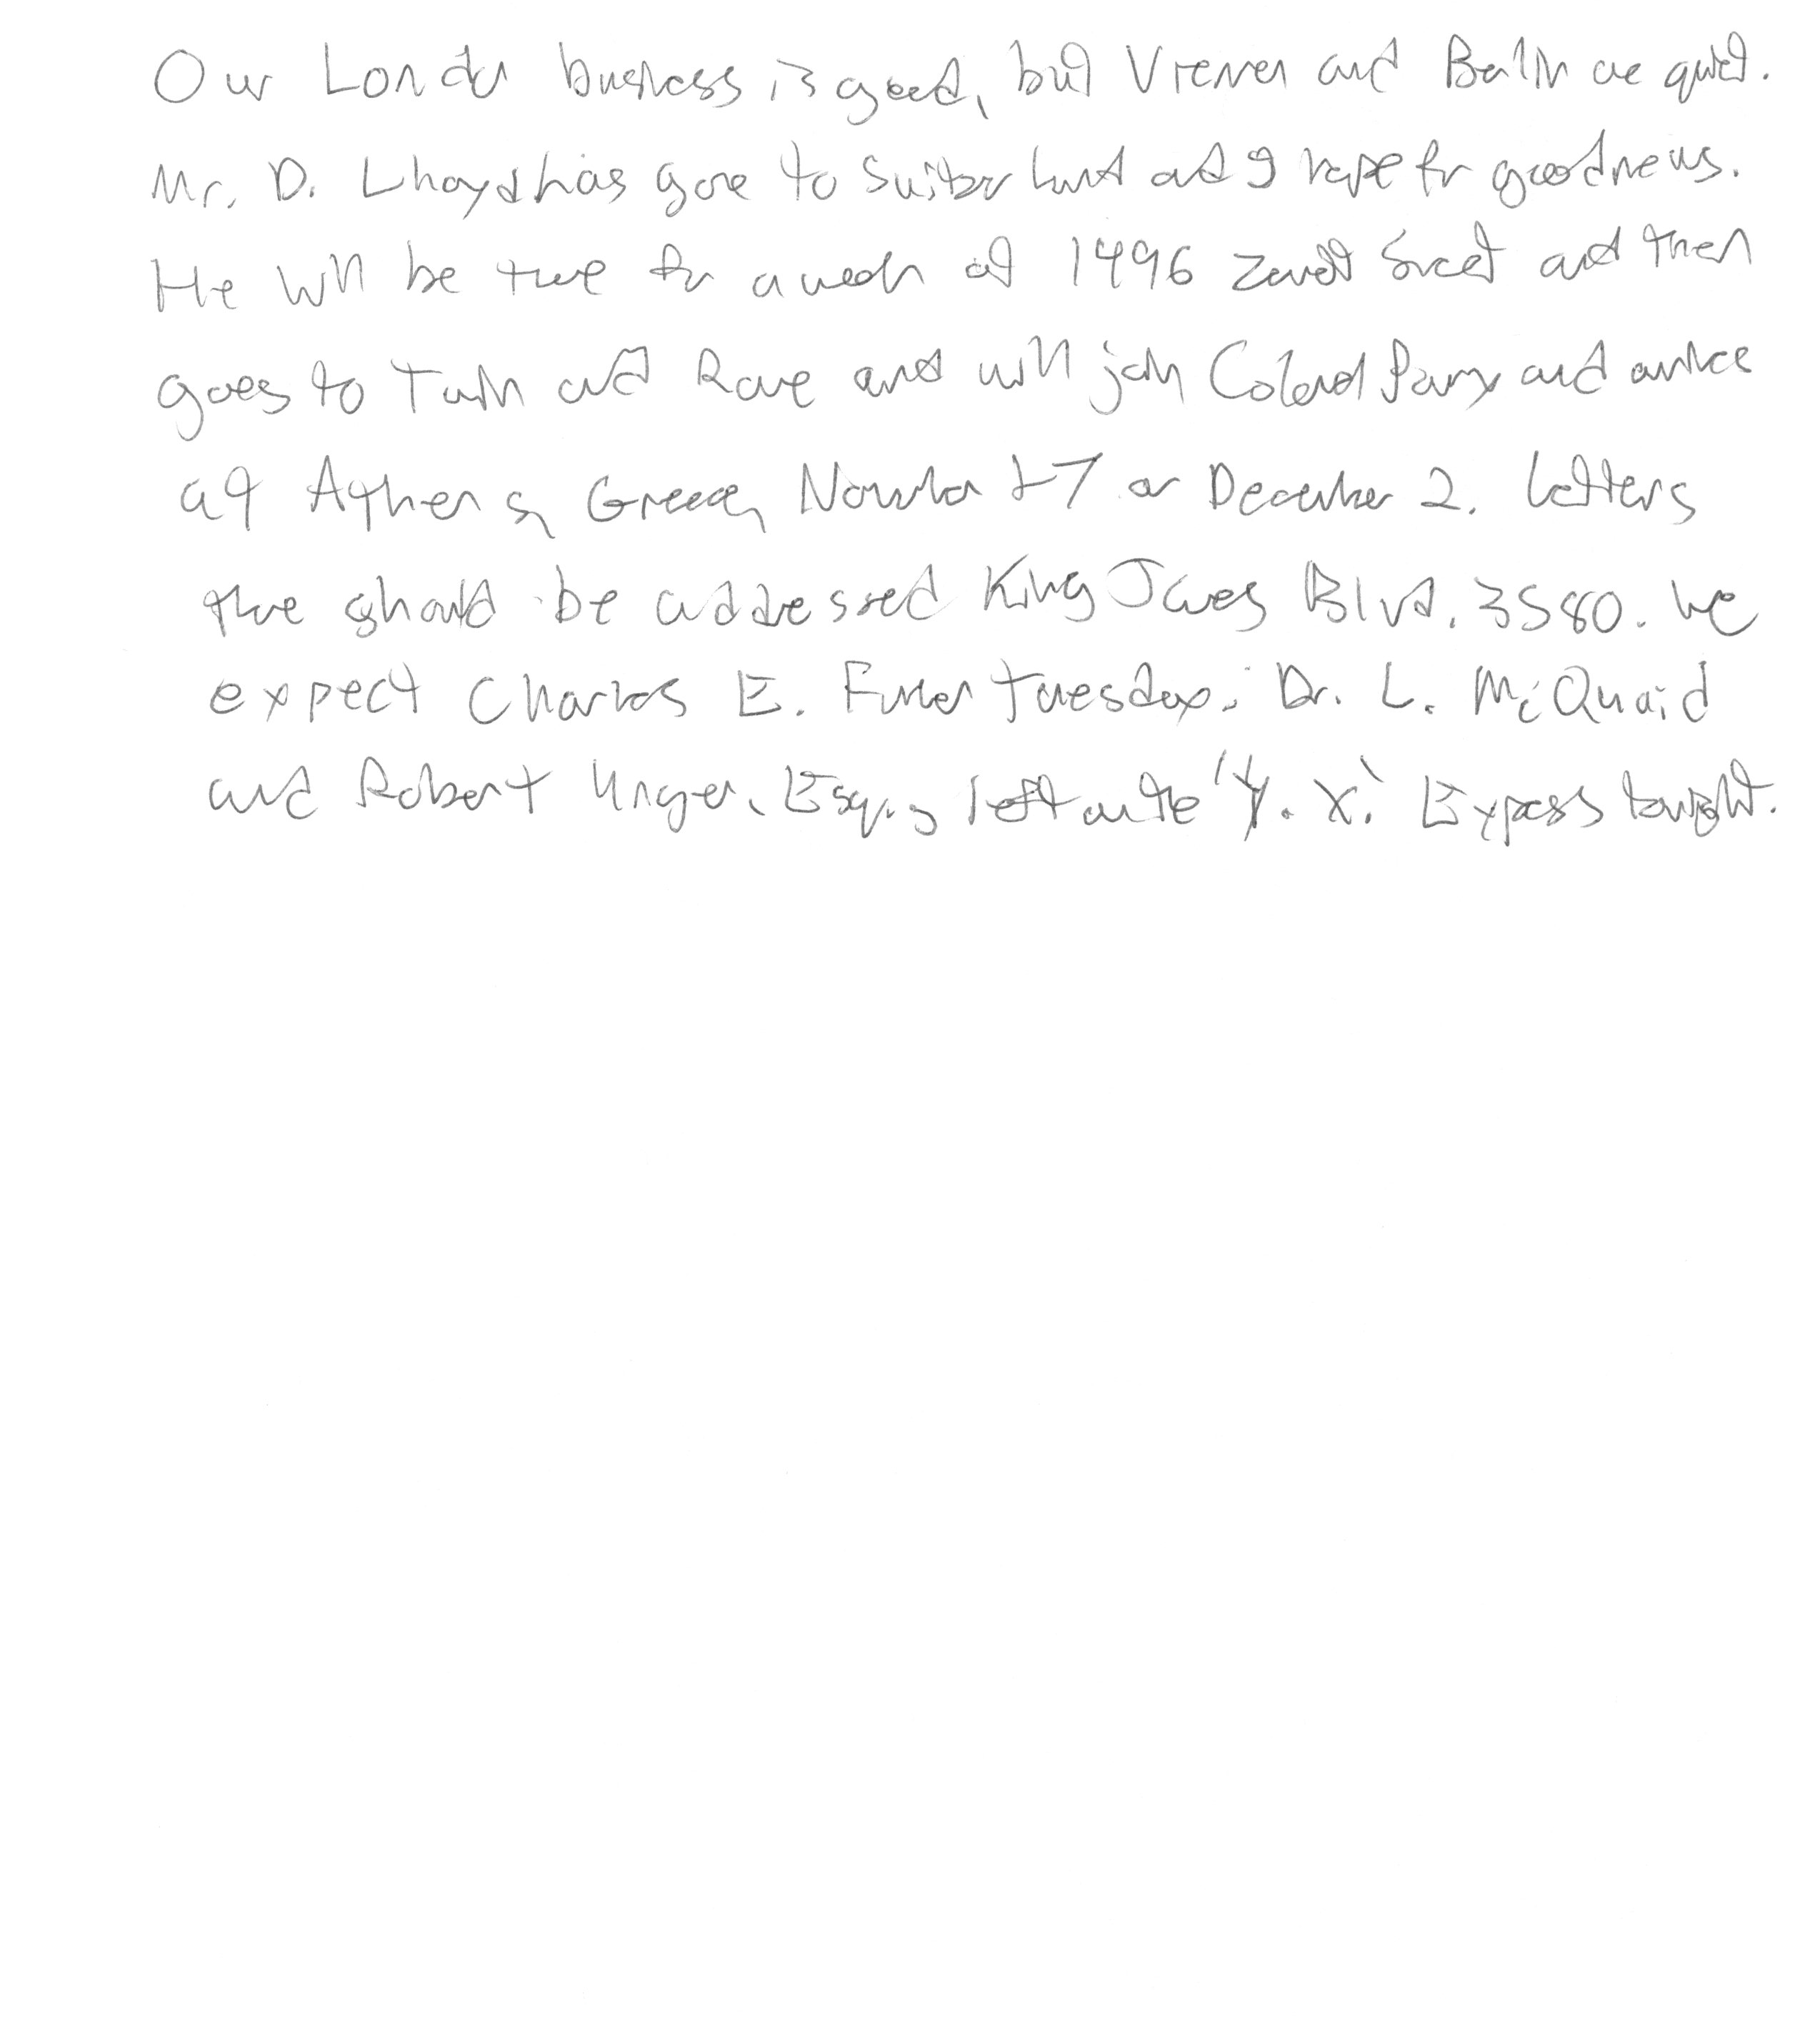 Our London business is good, but Vienna and Berlin are quiet.
Mr. D. Lhoyd has gone to Switzerland and I hope for good news.
He will be there for a week at 1496 Zermott Street and then
goes to Turin and Rome and will join Colonel Parry and arrive
at Athens, Greece, November 27 or December 2. Letters
there should be addressed King James Blvd. 3580. We
expect Charles E. Fuller Tuesday. Dr. L. McQuaid
and Robert Unger, Esq., left on the 'Y. X.' Express tonight.